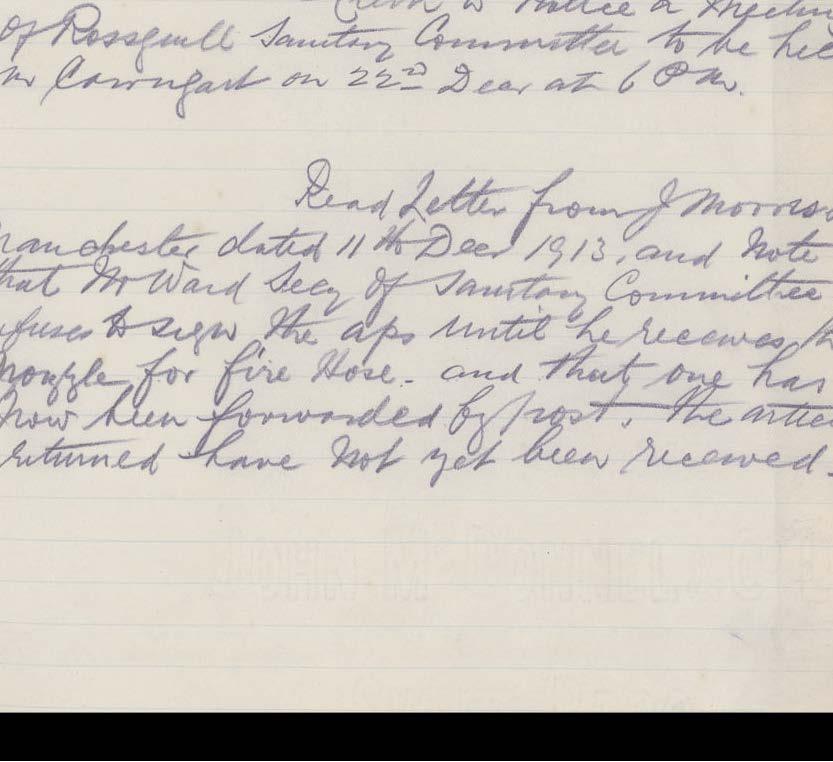 Notice a Meeting
Of Rossguill Sanitary Committee to be hel
on 22nd Decr at 6 P.M.
Read Letter from J Morrison
Manchester dated 11th Decr 1913, and Note
that Mr Ward Secy Of Sanitary Committee
efuses to sign the aps until he receives th
nozzle for fire Hose - and that one has
now been forwarded by post. The artic
returned have Not yet been received.